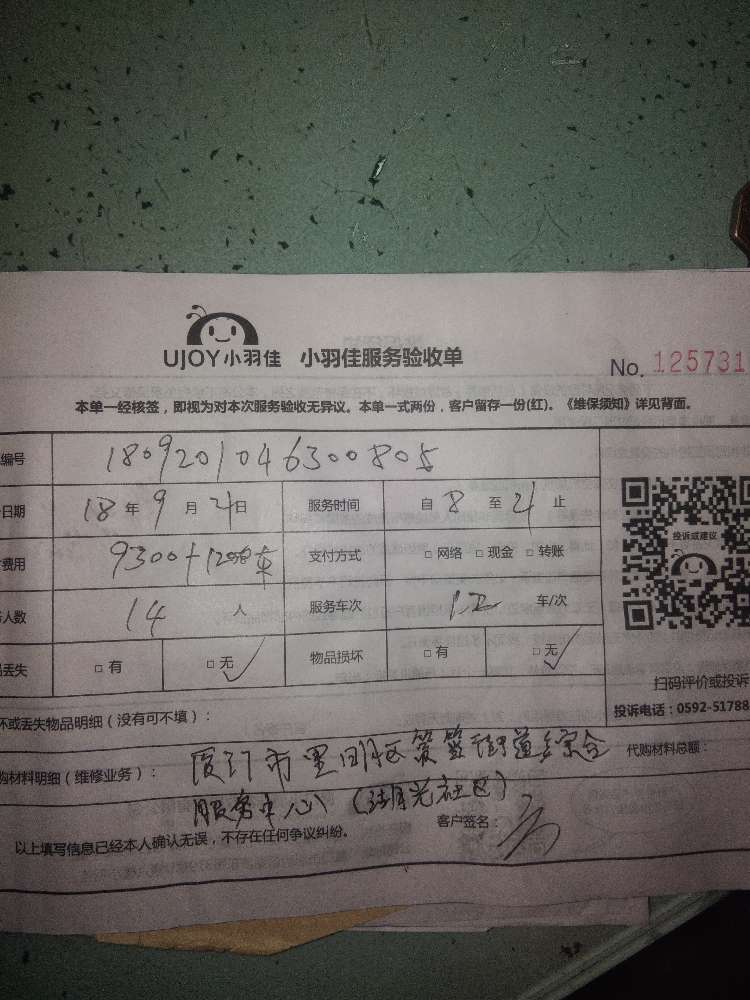 UJOY小羽佳 小羽佳服务验收单 No. 125731
本单一经核签，即视为对本次服务验收无异议。本单一式两份，客户留存一份(红)。《维保须知》详见背面。
编号 1809201046300805
日期 18年9月21日 服务时间 自8至21止
费用 9300+1200车 支付方式 □网络 □现金 □转账
人数 14人 服务车次 12 车/次
丢失 □有 □无✓ 物品损坏 □有 □无✓
投诉或建议
扫码评价或投诉
投诉电话：0592-51788
坏或丢失物品明细（没有可不填）：
购材料明细（维修业务）： 厦门市 区 街道综合 代购材料总额：
服务中心（湖光社区）
以上填写信息已经本人确认无误，不存在任何争议纠纷。 客户签名：